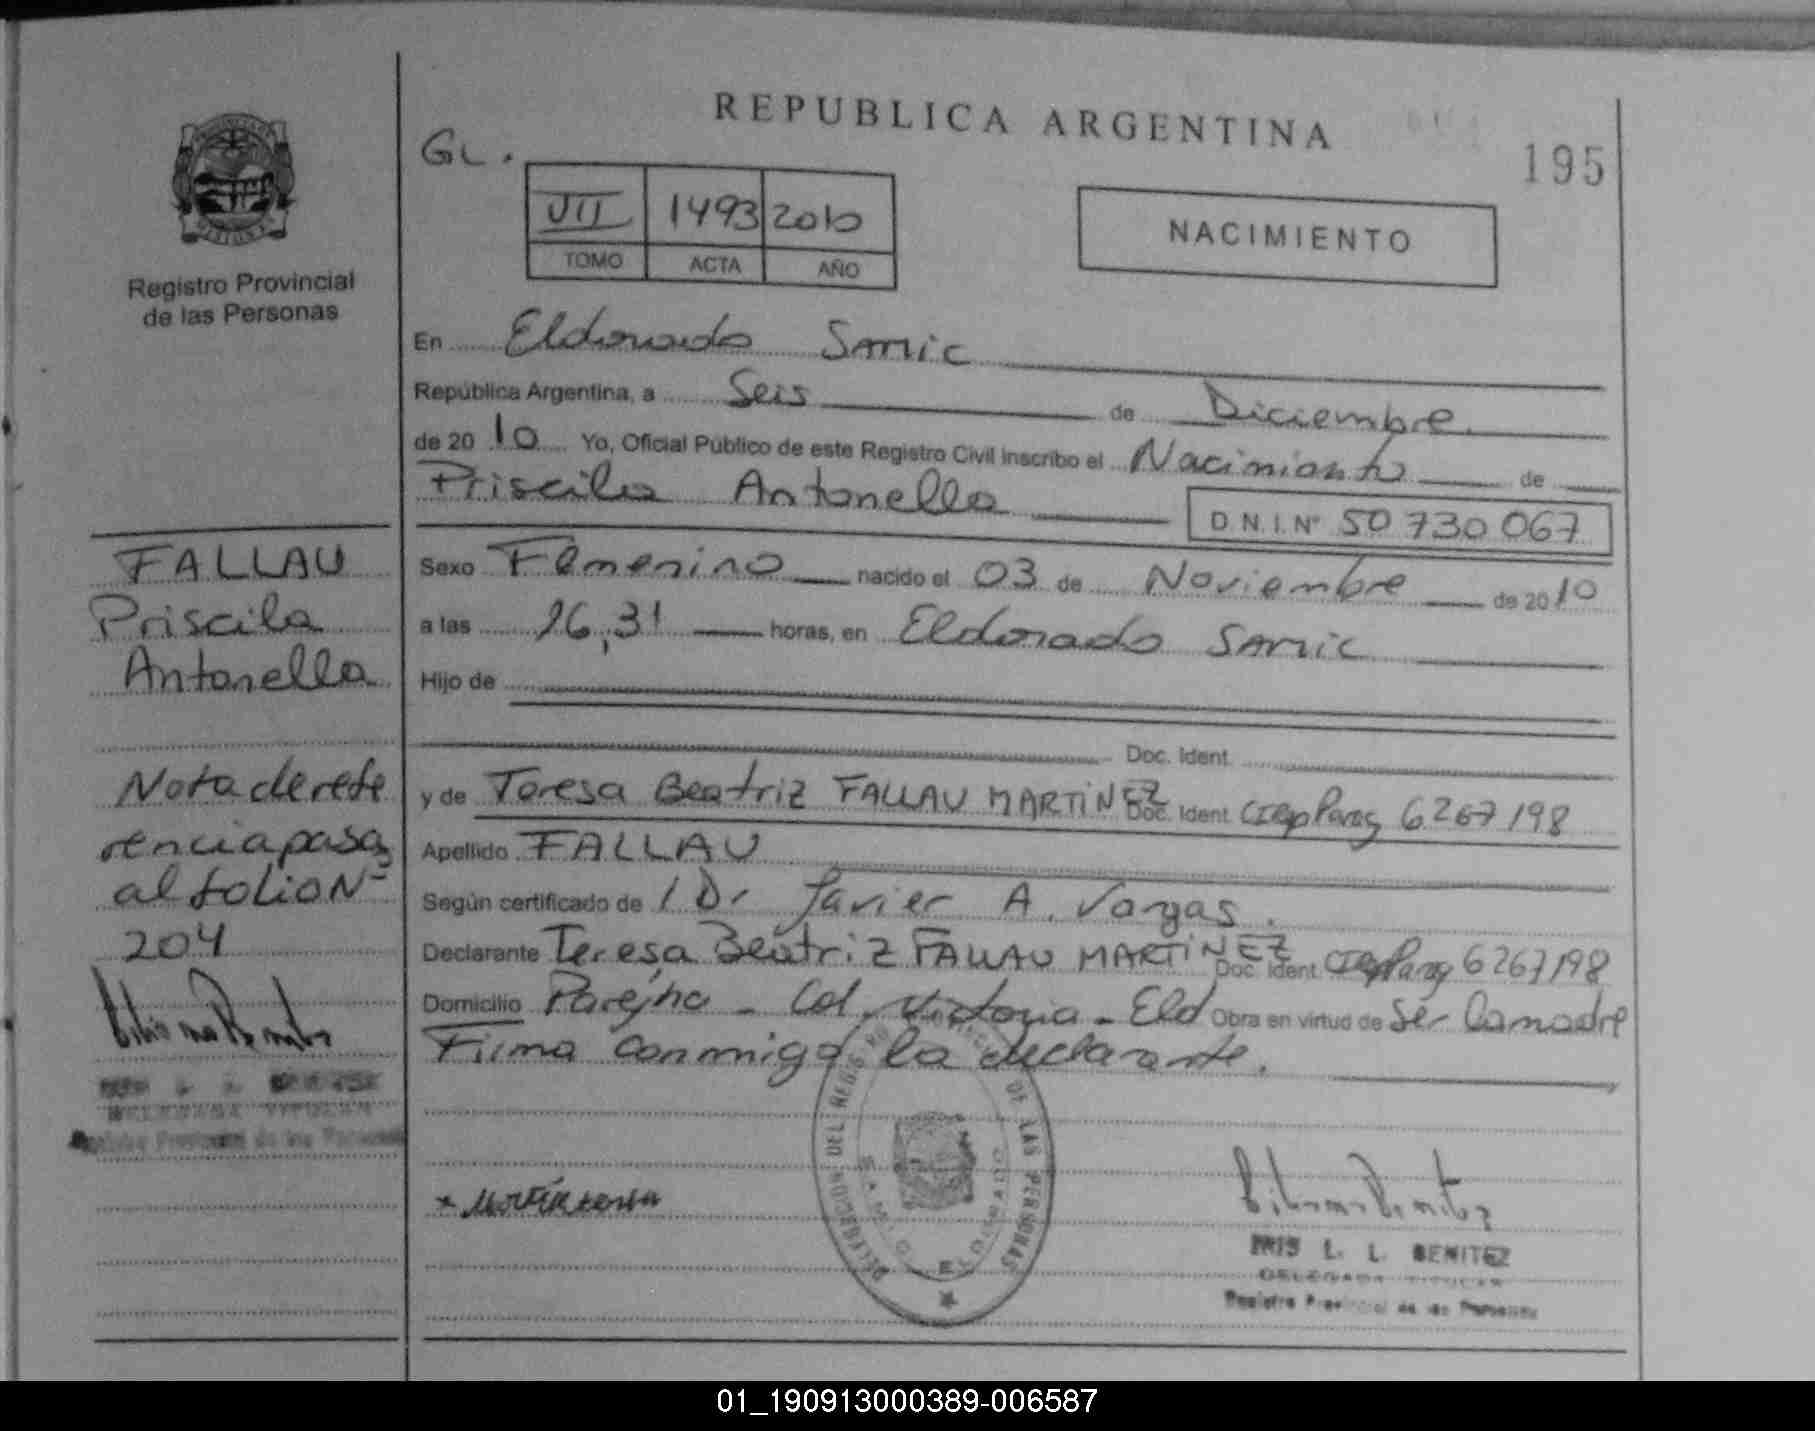 REPUBLICA ARGENTINA
195
GL.
VII 1493 2010
TOMO ACTA AÑO
NACIMIENTO
PROVINCIA DE MISIONES
Registro Provincial
de las Personas
En Eldorado Samic
República Argentina, a Seis de Diciembre
de 2010 Yo, Oficial Público de este Registro Civil inscribo el Nacimiento de
Priscila Antonella
D.N.I.Nº 50 730 067
Sexo Femenino nacido el 03 de Noviembre de 2010
a las 16,31 horas, en Eldorado Samic
Hijo de
Doc. Ident.
y de Teresa Beatriz FALLAU MARTINEZ Doc. Ident. CI Parag 6267198
Apellido FALLAU
Según certificado de 1 Dr Javier A. Vargas.
Declarante Teresa Beatriz FALLAU MARTINEZ Doc. Ident. Parag 6267198
Domicilio Parejha - Col. Victoria - Eld Obra en virtud de Ser la madre
Firma conmigo la declarante.
FALLAU
Priscila
Antonella
Nota de refe
rencia pasa
al folio Nº
204
DELEGADA TITULAR
Registro Provincial de las Personas
DELEGACION DEL REGISTRO PROVINCIAL DE LAS PERSONAS
SAMIC ELDORADO
IRIS L. L. BENITEZ
DELEGADA TITULAR
Registro Provincial de las Personas
01_190913000389-006587